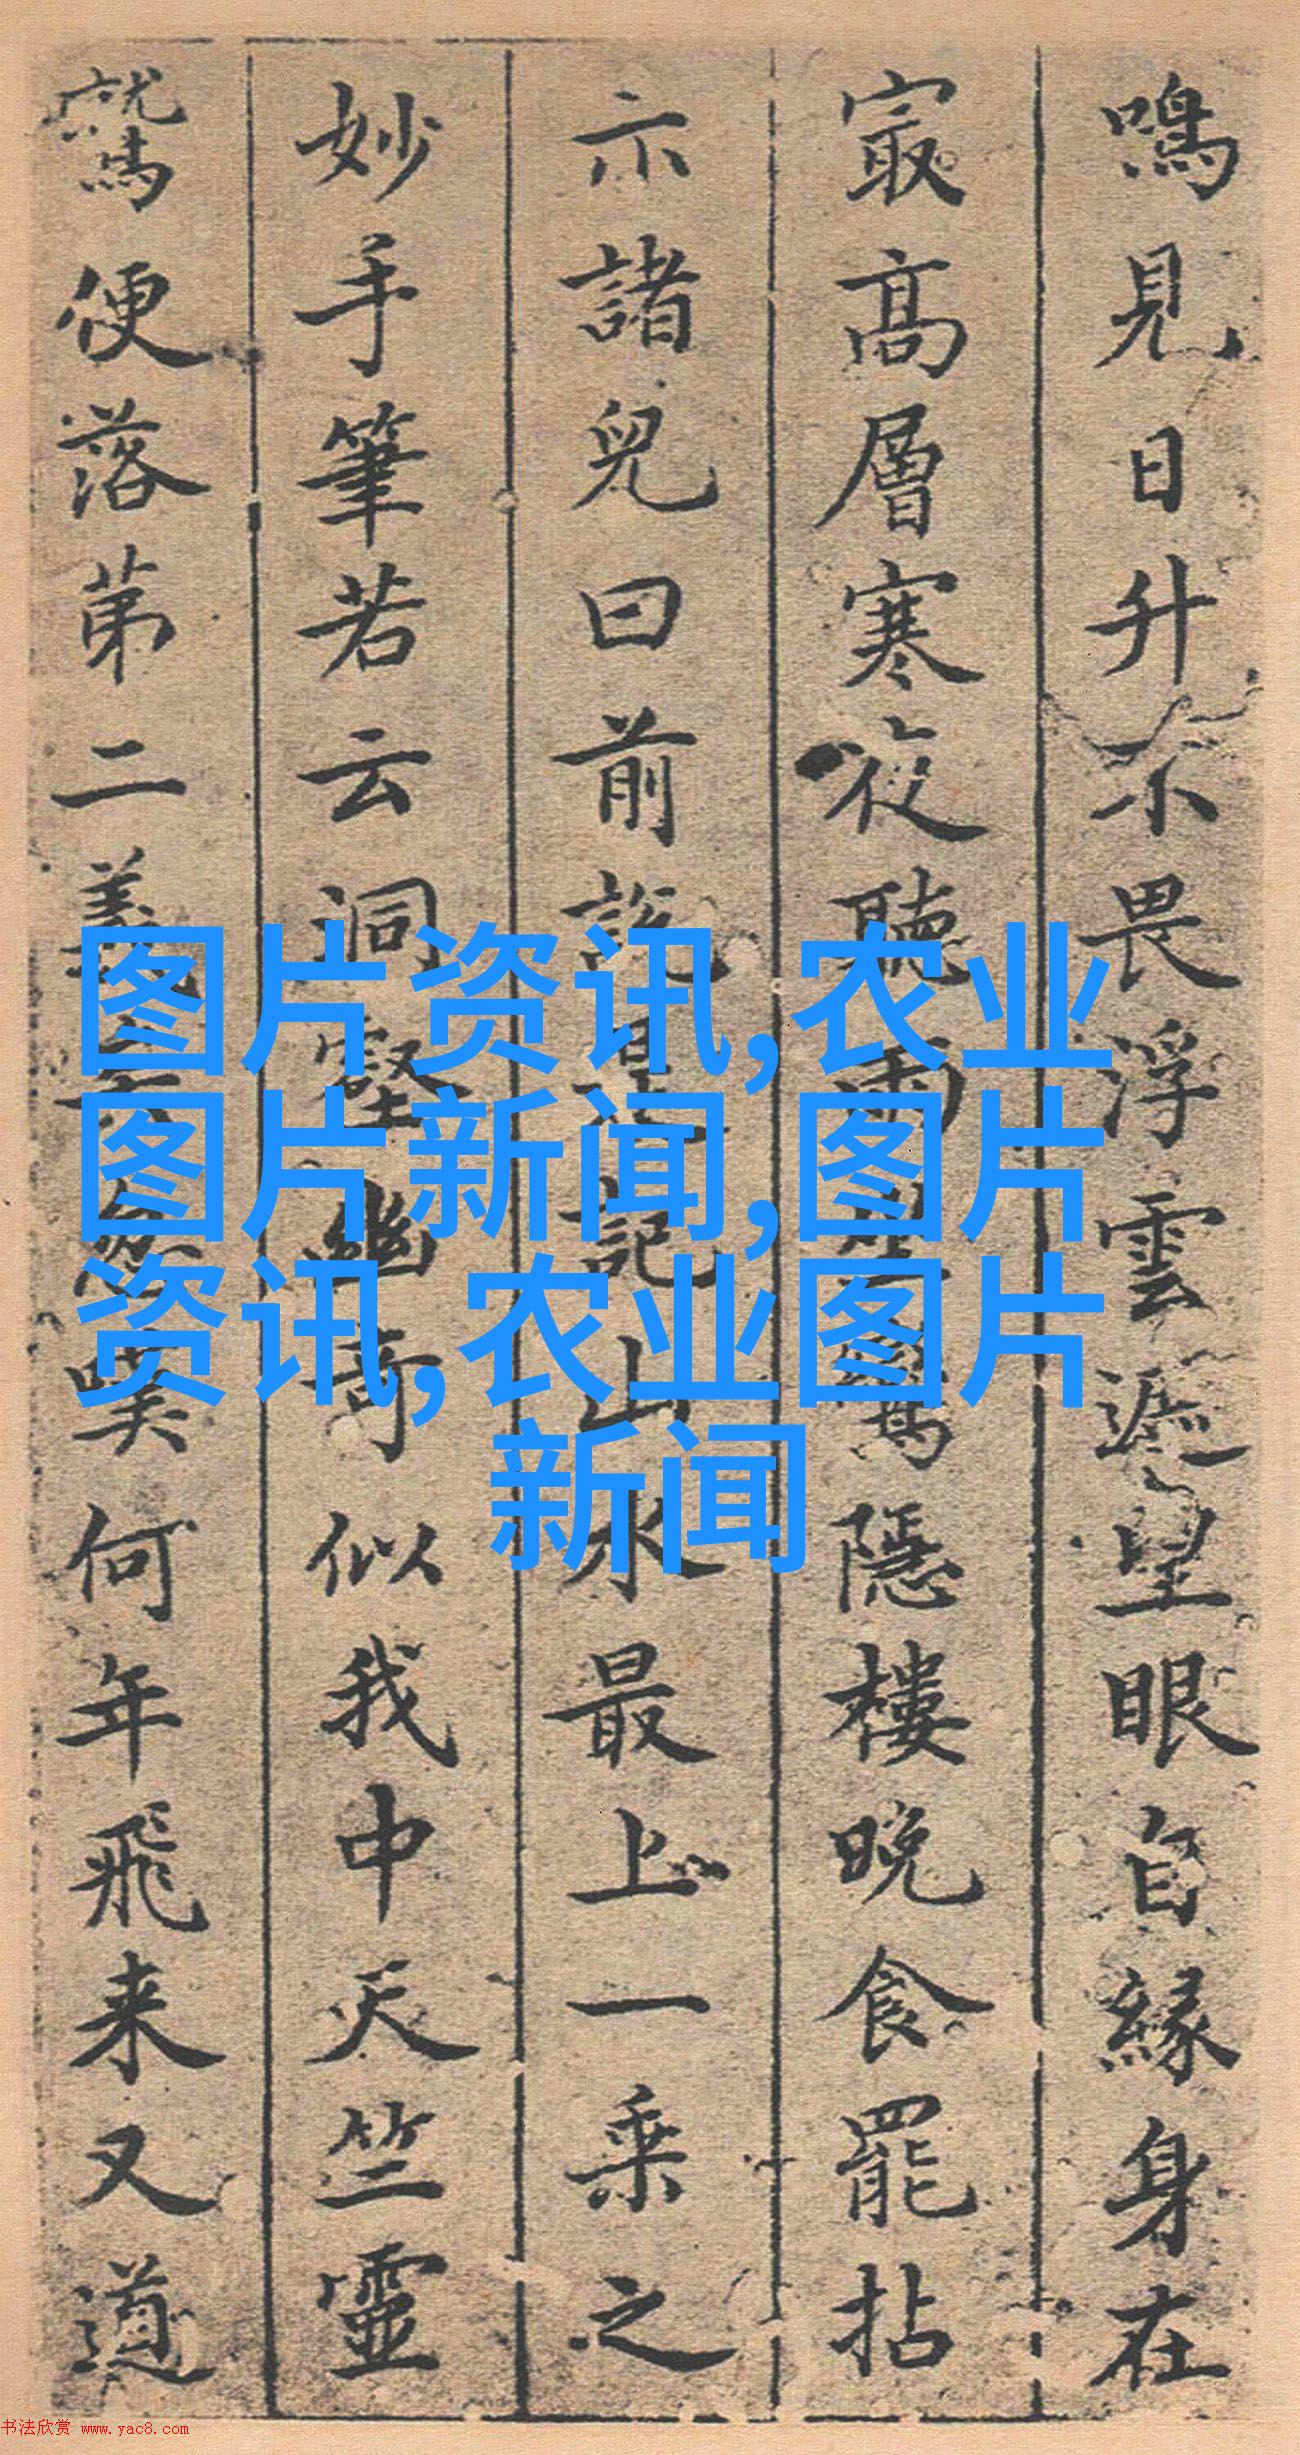 鳴見日升不畏浮雲遮望眼自緣身在
㝡高層寒夜聽雨隱樓晚食罷拈
示諸兒曰前記山水最上一乘之
妙手筆若云洞壑幽奇似我中天竺靈
鷲便落苐二義嘆何年飛来又道
图片资讯,农业
图片新闻,图片
资讯,农业图片
新闻
书法欣赏 www.yac8.com